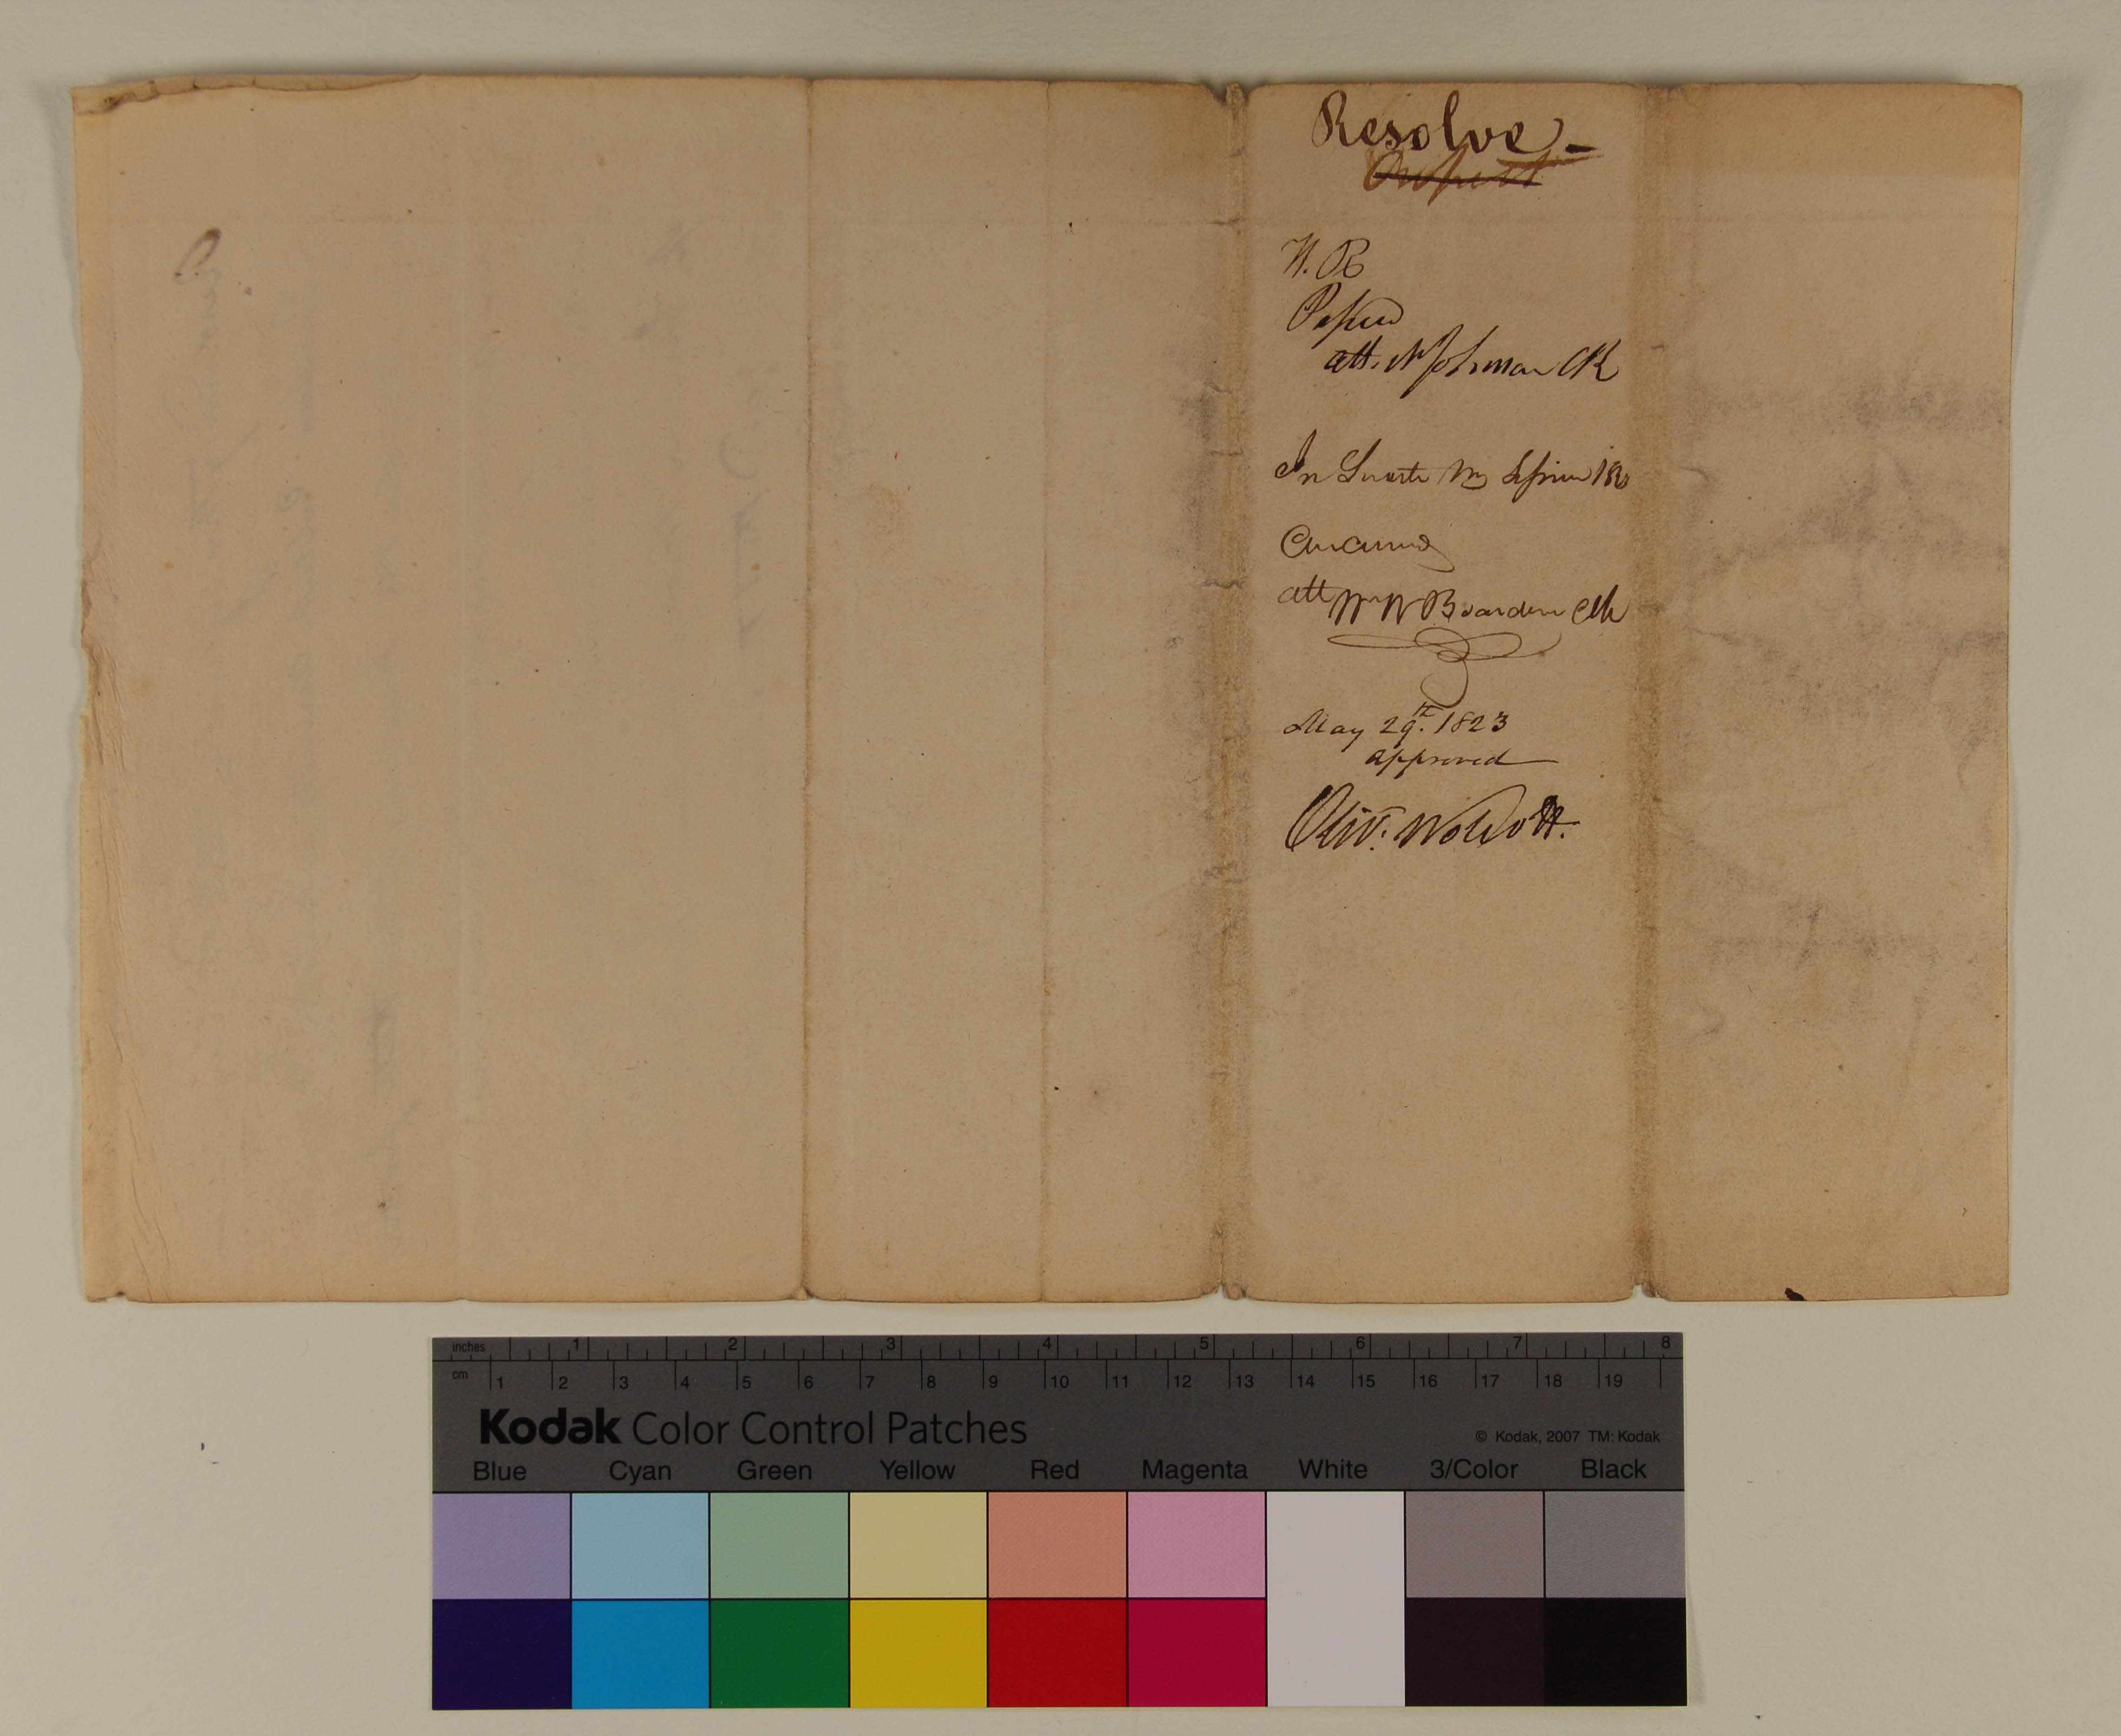 Resolve -
H. R
Passed
att. N Johnson Clk
In Senate May Session 1823
Concurred
att Wm W Boardman Clk
May 29th. 1823
approved
Oliv: Wolcott.
inches 1 2 3 4 5 6 7 8
cm 1 2 3 4 5 6 7 8 9 10 11 12 13 14 15 16 17 18 19
Kodak Color Control Patches
© Kodak, 2007 TM: Kodak
Blue Cyan Green Yellow Red Magenta White 3/Color Black